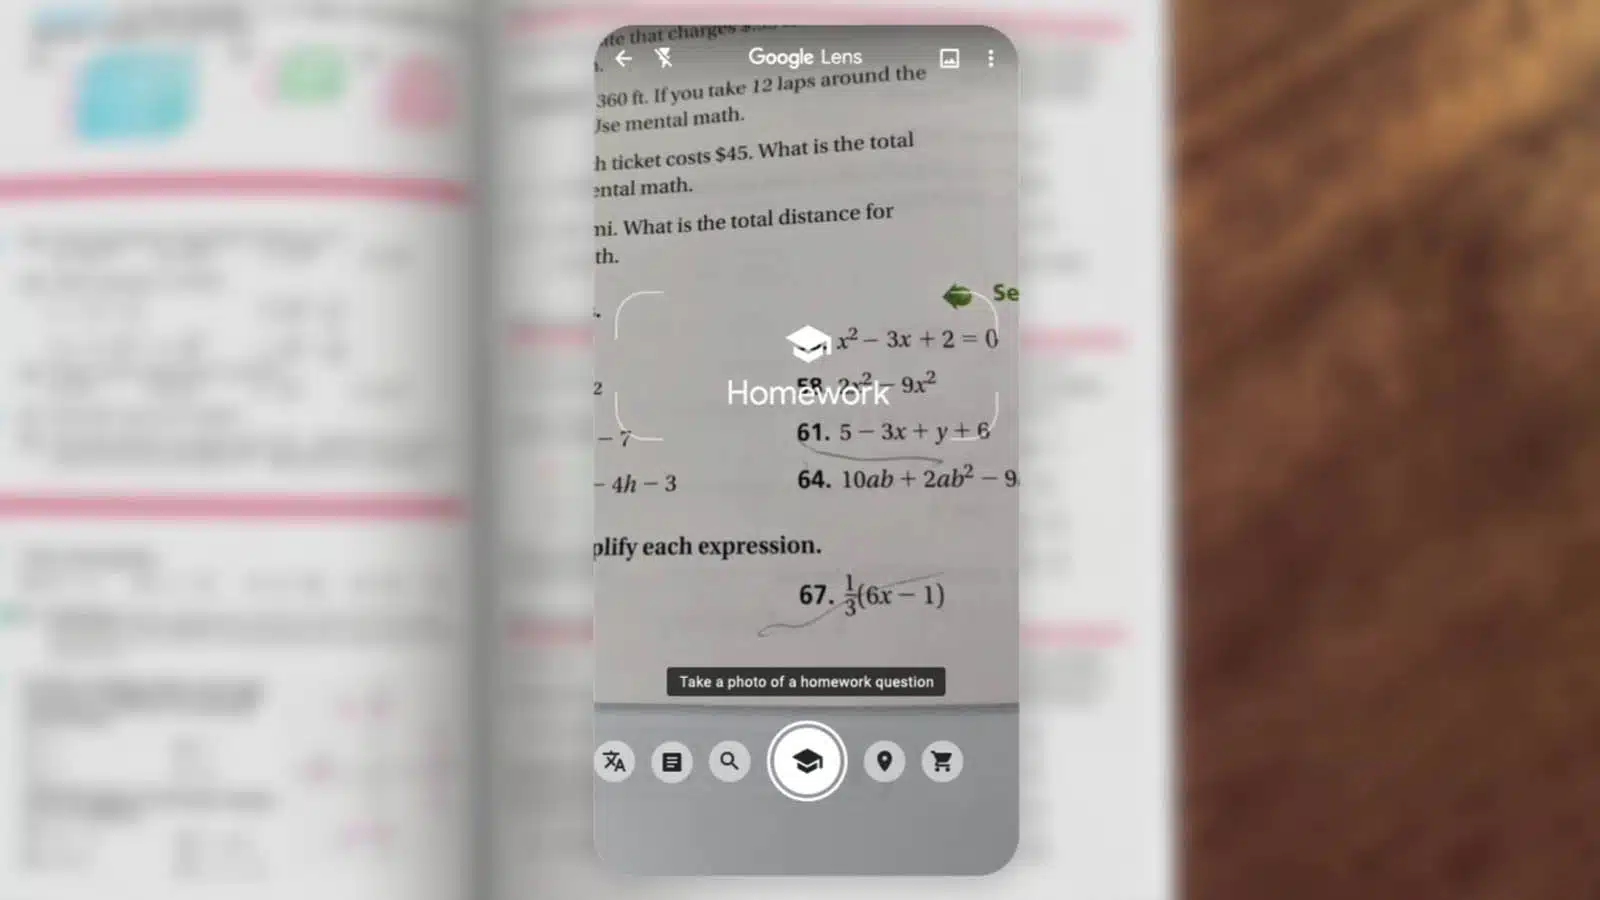 Google Lens
ite that charges
360 ft. If you take 12 laps around the
Use mental math.
h ticket costs $45. What is the total
ental math.
ni. What is the total distance for
th.
Se
x² – 3x + 2 = 0
Homework
2
58. 2x² – 9x²
– 7
61. 5 – 3x + y + 6
– 4h – 3
64. 10ab + 2ab² – 9
plify each expression.
67. 1/3(6x – 1)
Take a photo of a homework question